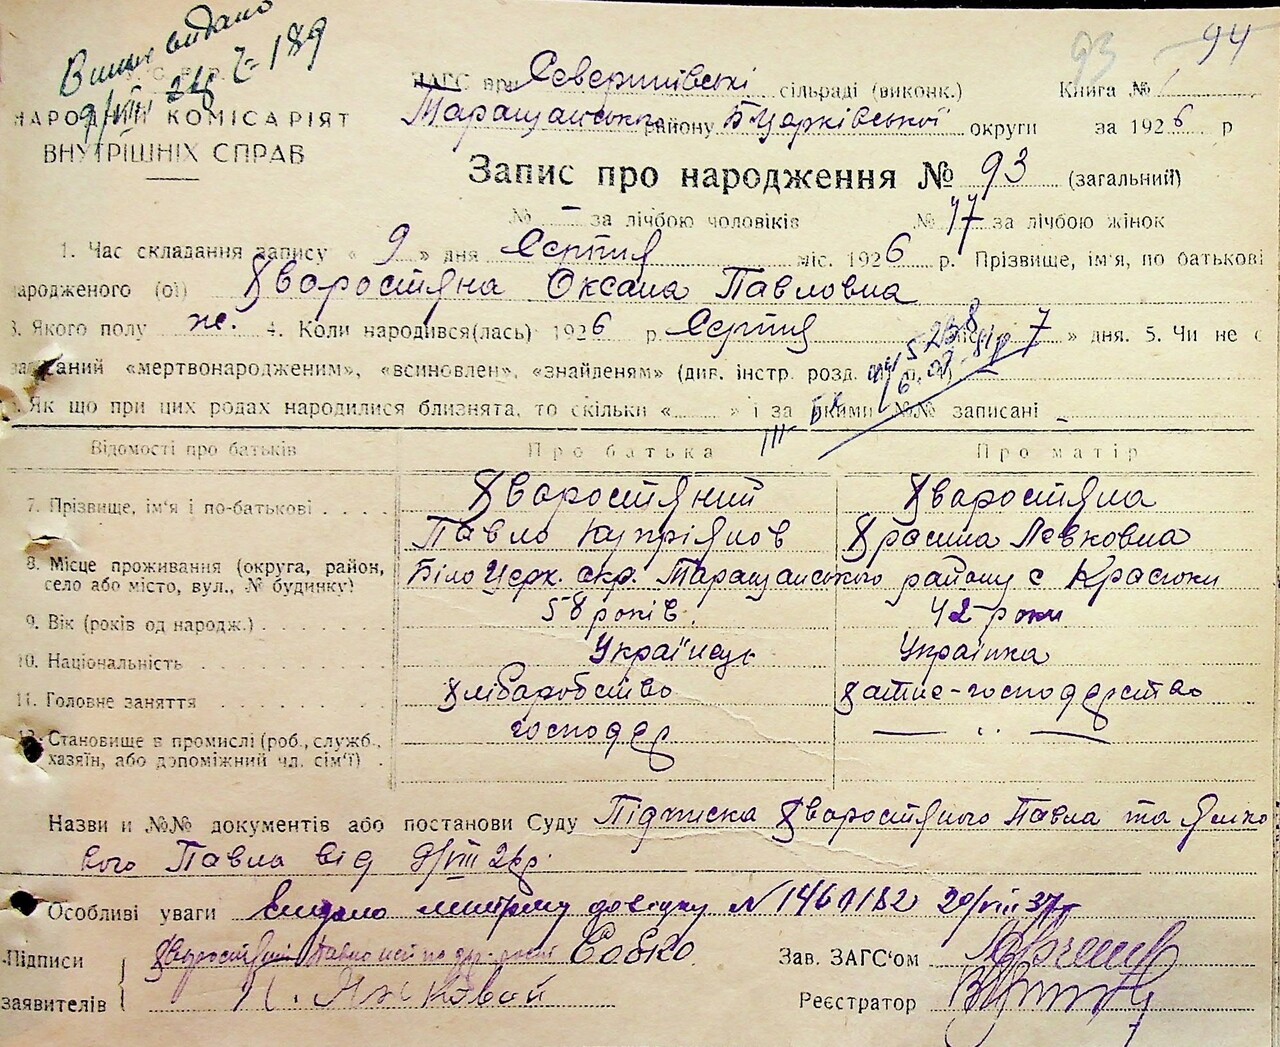 Виписи видано
9/VIII 26 г №189
У. С. Р. Р.
НАРОДНИЙ КОМІСАРІЯТ
ВНУТРІШНІХ СПРАВ
93 94
ЗАГС при Северинівські сільраді (виконк.) Книга №
Таращанського району Б.Церківської округи за 1926 р
Запис про народження № 93 (загальний)
№ – за лічбою чоловіків № 47 за лічбою жінок
1. Час складання запису « 9 » дня Серпня міс. 1926 р. Прізвище, ім'я, по батькові
народженого (ої) Хворостяна Оксана Павловна
3. Якого полу ж. 4. Коли народився(лась) 1926 р. Серпня міс. 7 » дня. 5. Чи не є
записаний «мертвонародженим», «всиновлен», «знайденям» (див. інстр. розд.
Як що при цих родах народилися близнята, то скільки « » і за якими №№ записані –
Відомості про батьків Про батька Про матір
7. Прізвище, ім'я і по-батькові Хворостяний Хворостяна
Павло Купріянов Красина Левковна
8. Місце проживання (округа, район, село або місто, вул., № будинку) Біло Церк. окр. Таращанського району с Красюки
9. Вік (років од народж.) 58 років. 42 роки
10. Національність Українець Українка
11. Головне заняття Хліборобство хатнє-господарство
12. Становище в промислі (роб., служб., хазяїн, або допоміжний чл. сім'ї) господар — " —
Назви и №№ документів або постанови Суду Підписка Хворостяного Павла та Янко
вого Павла від 9/VIII 26 р.
Особливі уваги Видано метричну довідку N 1460182 20/VIII 37 г
Підписи заявителів Хворостяний Павло Собко Зав. ЗАГС'ом
П. Янковой Реєстратор